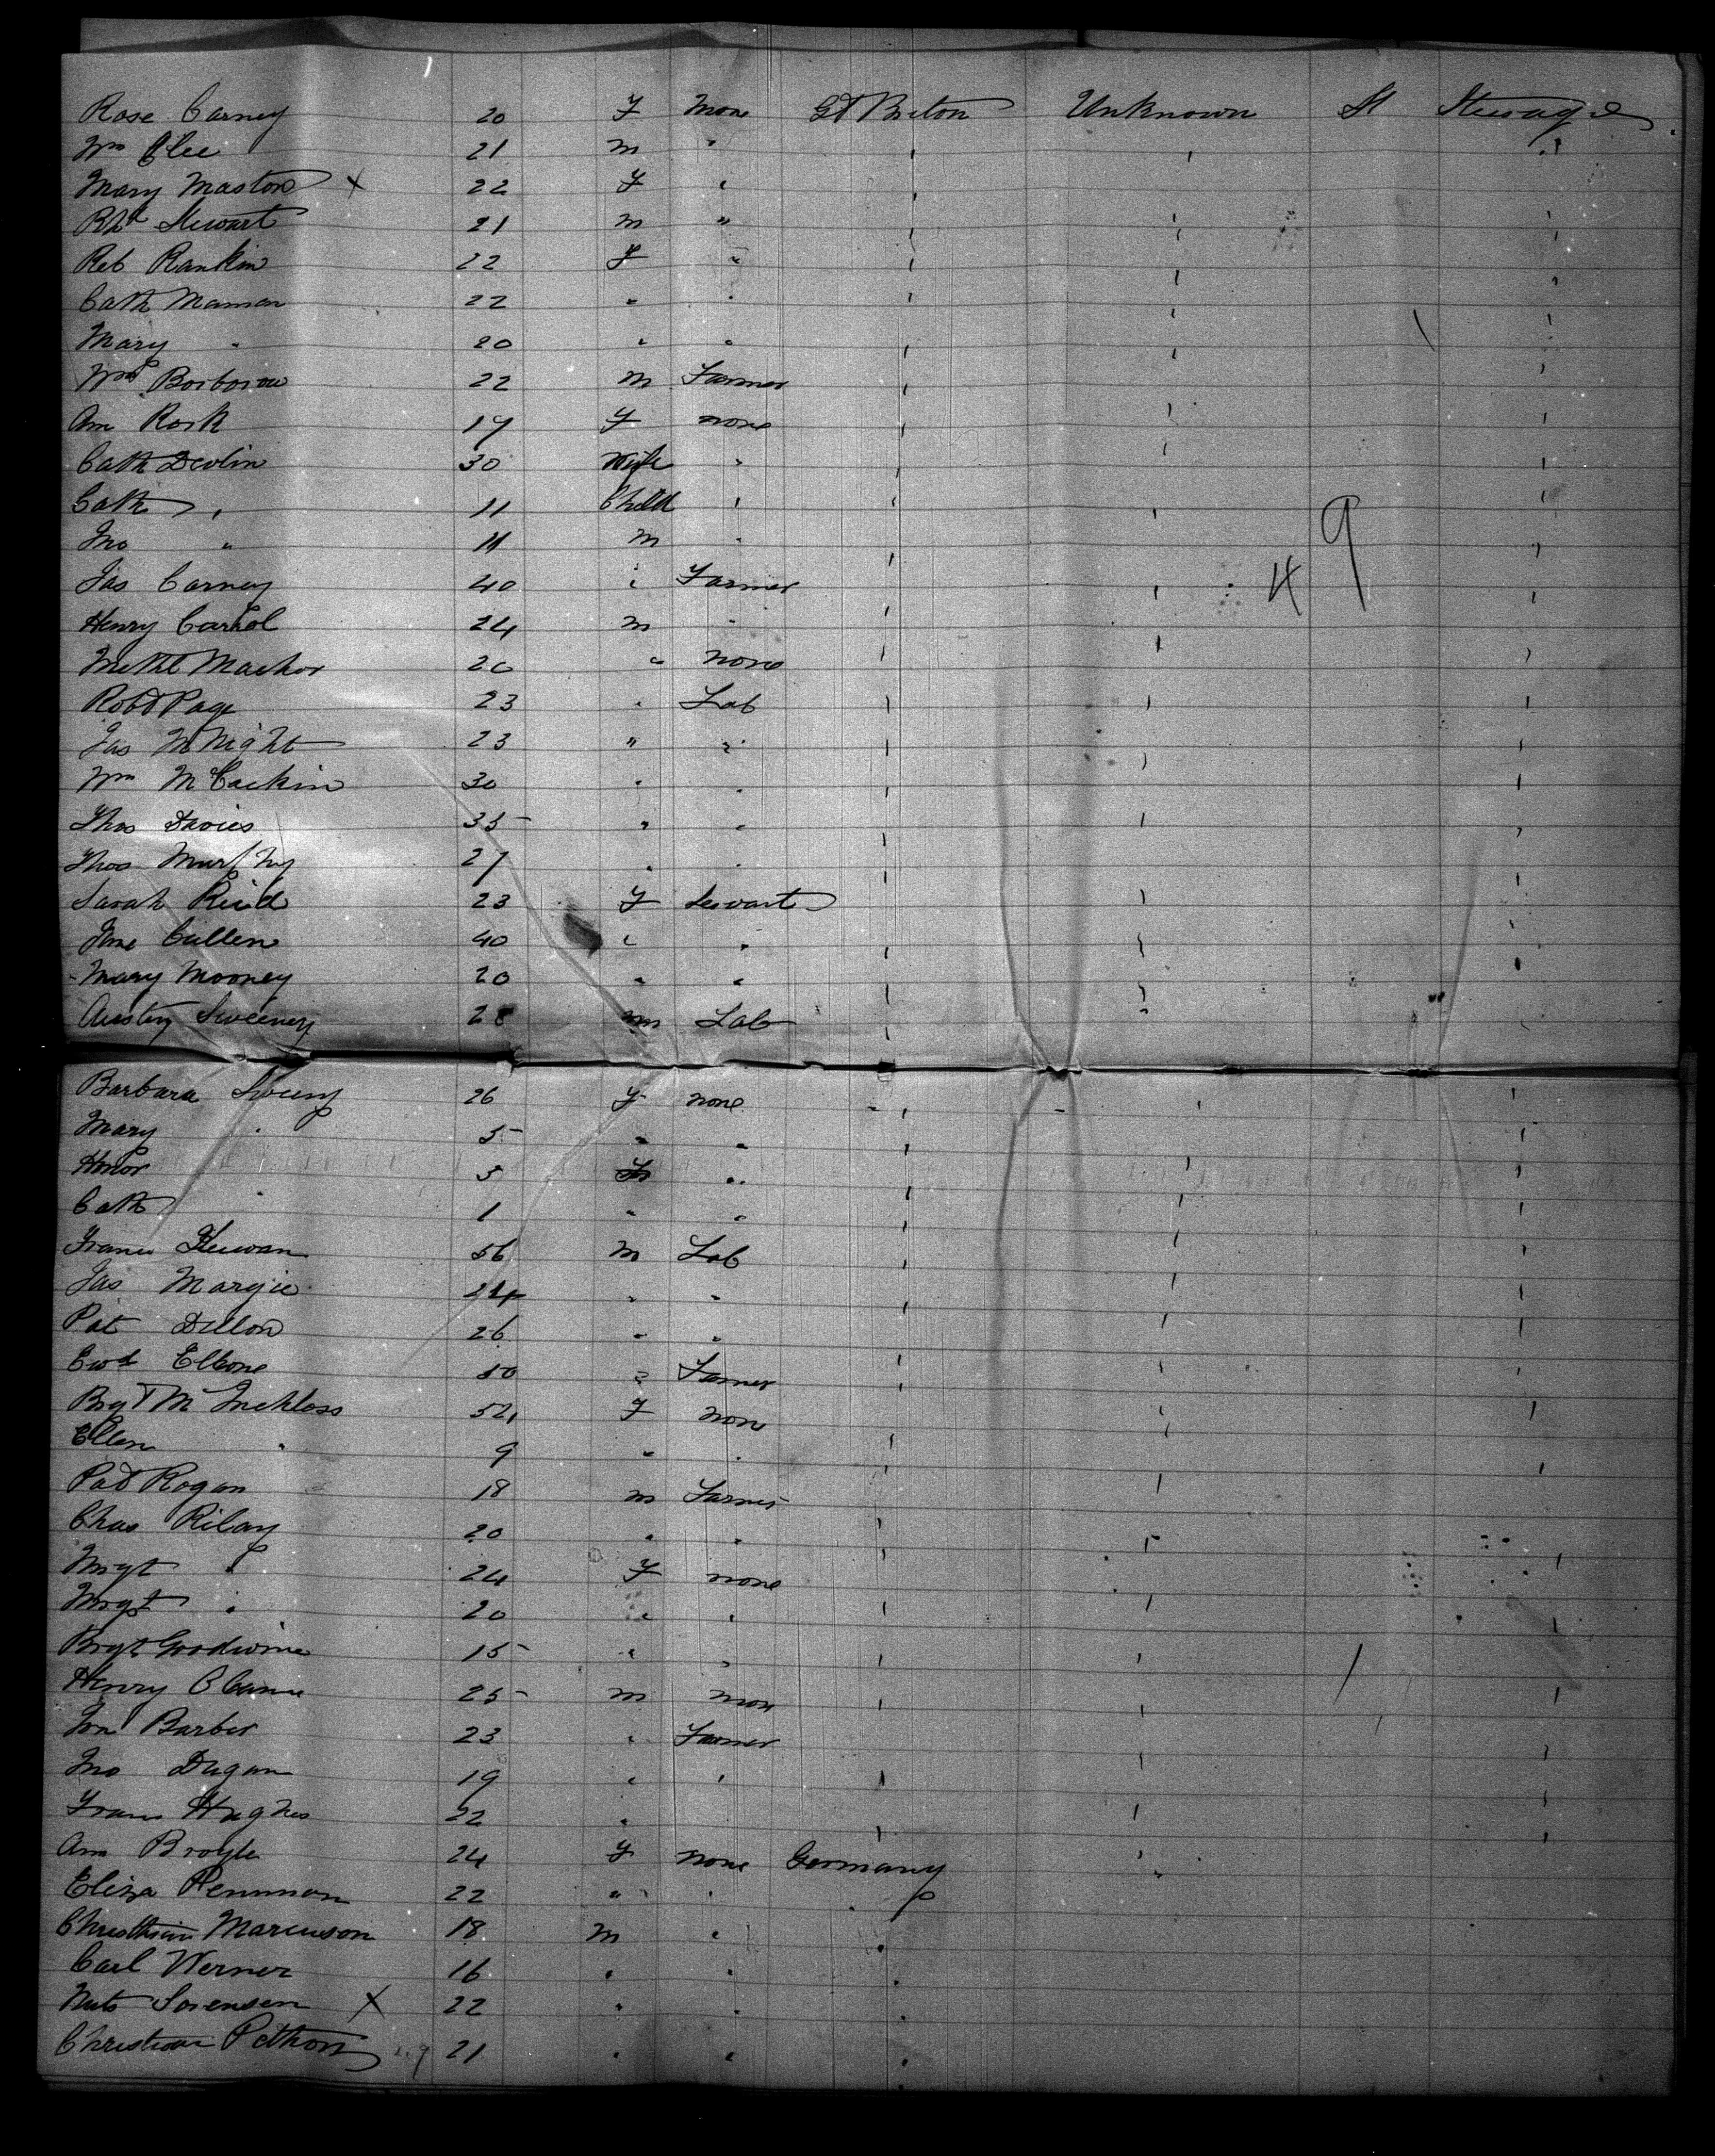 Rose Carney 20 F None Gt Briton Unknown St Steerage
Wm Clee 21 m "
Mary Maston x 22 F "
Rbt Stewart 21 m "
Reb Rankin 22 F "
Cath Mannan 22 " "
Mary " 20 " "
Wm 22 m Farmer
Ann Rork 19 F none
Cath Devlin 30 Wife "
Cath " 11 Child "
Jno " 11 m "
9
Jas Carney 40 " Farmer
4
Henry Carrol 24 m "
Machor 20 " none
Robt Page 23 " Lab
Jas McNight 23 " "
Wm McCackin 30 " "
Thos Davies 35 " "
Thos Murphy 27 " "
Sarah Reid 23 F Servant
Jane Cullen 40 " "
Mary Mooney 20 " "
Austin Sweeney 28 m Lab
Barbara Sweeny 26 F none
Mary " 5 " "
Honor 3 "
Cath " 1 " "
56 m Lab
Jas Margie 24 " "
Pat Dillon 26 " "
Ewd 50 " Farmer
Bgt 52 F none
Ellen " 9 " "
Pat Rogan 18 m Farmer
Chas Rilay 20 " "
Mgt " 24 F none
Mrgt " 20 " "
Brgt Goodwine 15 " "
Henry 25 m none
Jno Barber 23 " Farmer
Jno Dugan 19 " "
Frans Hughes 22 "
Ann Brogle 24 F none Germany
Eliza Penman 22 " "
Christian Marcuson 18 m "
Carl Werner 16 " "
Sorensen X 22 " "
Christian 21 " "